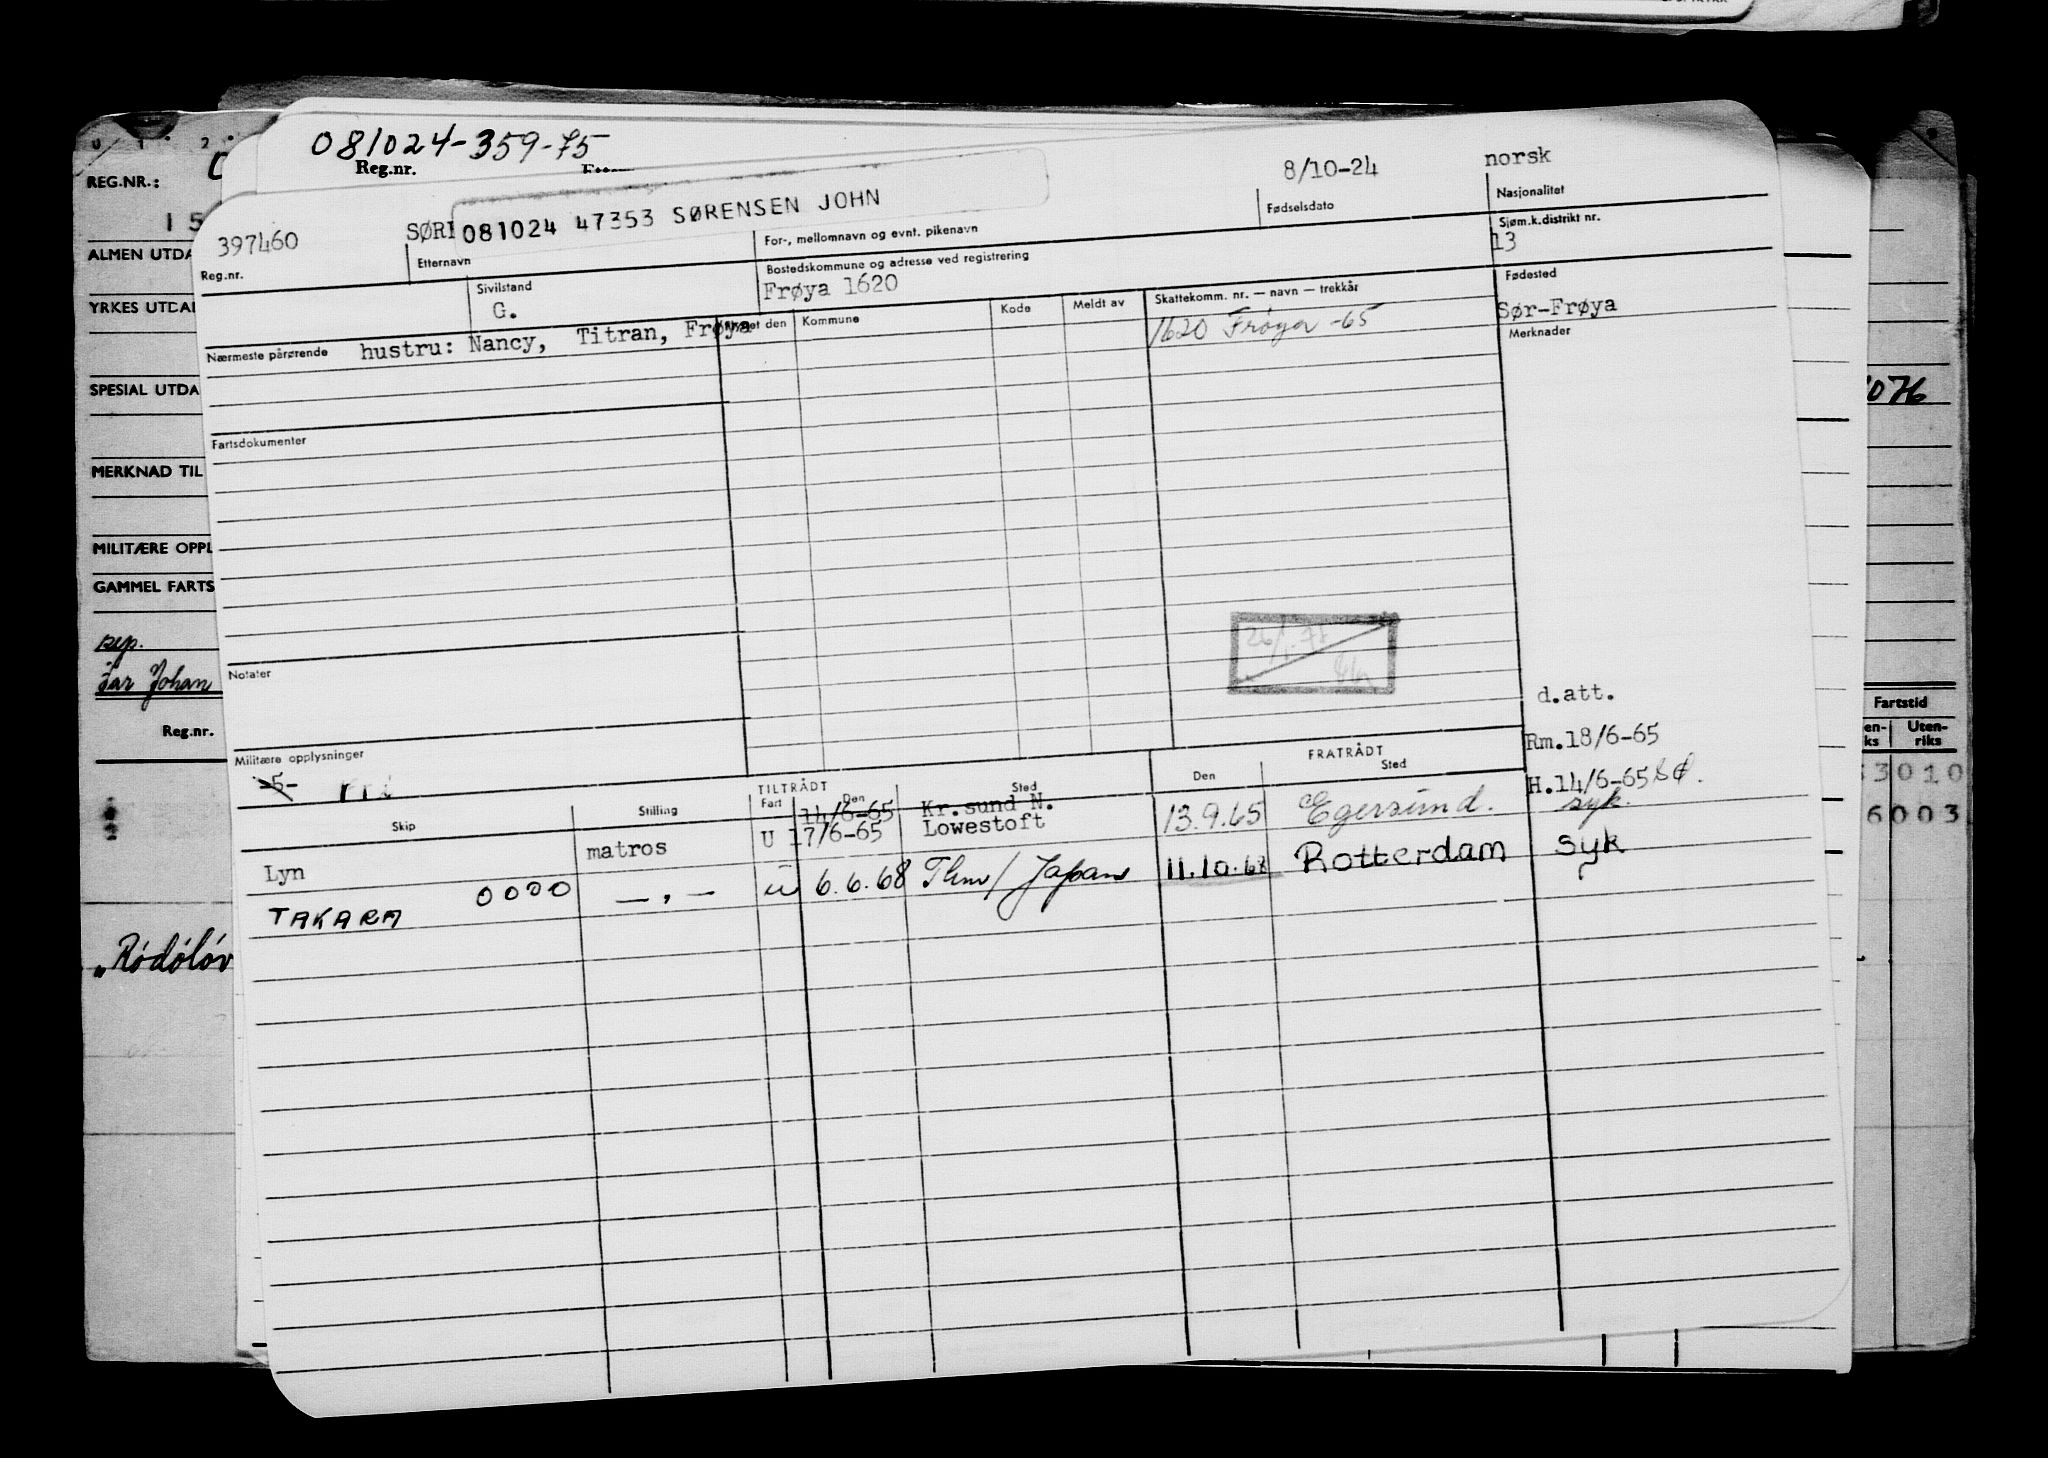 081024-359-75
Reg.nr.
REG.NR.:
ALMEN UTDA
YRKES UTDA
SPESIAL UTDA
MERKNAD TIL
MILITÆRE OPPL
GAMMEL FARTS
rep.
far Johan
Reg.nr.
"Rödölöv
397460 SØR 081024 47353 SØRENSEN JOHN 8/10-24 norsk
Reg.nr. Etternavn For-, mellomnavn og evnt. pikenavn Fødselsdato Nasjonalitet
Sivilstand Bostedskommune og adresse ved registrering Sjøm.k.distrikt nr.
G. Frøya 1620 13
Nærmeste pårørende hustru: Nancy, Titran, Frøya
et den Kommune Kode Meldt av Skattekomm. nr. — navn — trekkår Fødested
1620 Frøya -65 Sør-Frøya
Merknader
Fartsdokumenter
Notater
d.att.
Militære opplysninger
-5- Fri
Rm.18/6-65
H.14/6-65 SØ.
TILTRÅDT FRATRÅDT
Skip Stilling Fart Den Sted Den Sted
14/6-65 Kr.sund N.
Lyn matros U 17/6-65 Lowestoft 13.9.65 Egersund. syk.
TAKARA 0000 — , — u 6.6.68 / Japan 11.10.68 Rotterdam syk
076
Fartstid
en-ks Uten-riks
3010
6003